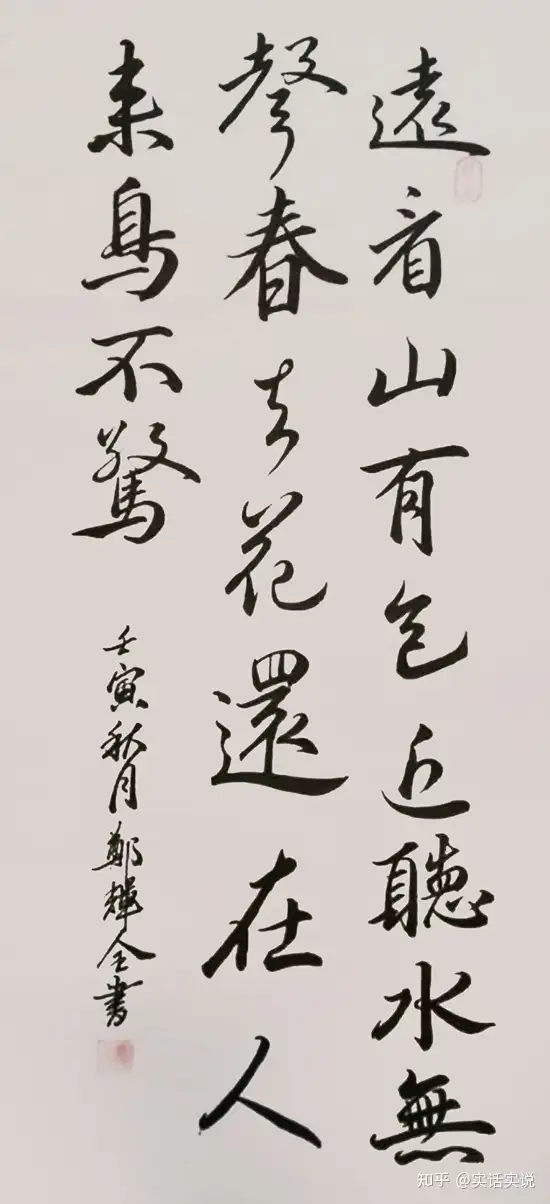 遠看山有色近聽水無
聲春去花還在人
来鳥不驚
壬寅秋月鄭輝全書
知乎 @实话实说